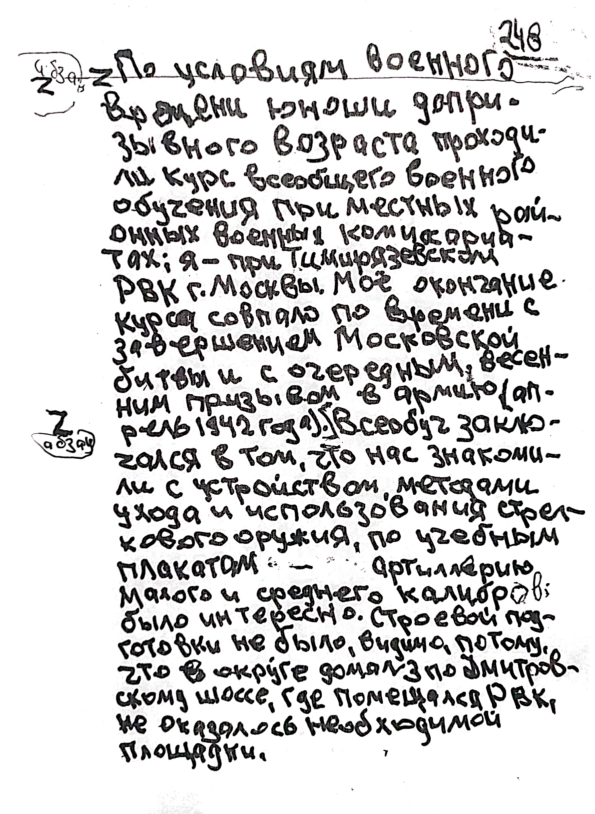 248
абзац
Z
Z По условиям военного
времени юноши допри-
зывного возраста проходи-
ли курс всеобщего военного
обучения при местных рай-
онных военных комисариа-
тах; я - при Тимирязевском
РВК г. Москвы. Моё окончание
курса совпало по времени с
завершением Московской
битвы и с очередным, весен-
ним призывом в армию (ап-
рель 1942 года). [Всеобуч заклю-
Z
абзац
чался в том, что нас знакоми-
ли с устройством, методами
ухода и использования стрел-
кового оружия, по учебным
плакатам — артиллерию
малого и среднего калибров:
было интересно. Строевой под-
готовки не было, видимо, потому,
что в округе дома 3 по Дмитров-
скому шоссе, где помещался РВК,
не оказалось необходимой
площадки.